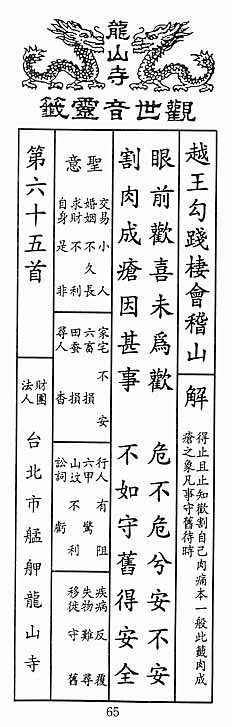 龍山寺
觀世音靈籤
越王勾踐棲會稽山
解
得止且止知歡割自己肉痛本一般此籤肉成
瘡之象凡事守舊待時
眼前歡喜未為歡 危不危兮安不安
割肉成瘡因甚事 不如守舊得安全
聖意
交易 小人
婚姻 不久長
求財 不利
自身 是非
家宅 不安
六畜 損
田蚕 損
尋人 杳
行人 有阻
六甲 驚
山坟 不利
訟詞 虧
疾病 反覆
失物 難尋
移徙 守舊
第六十五首
財團法人
台北市艋舺龍山寺
65